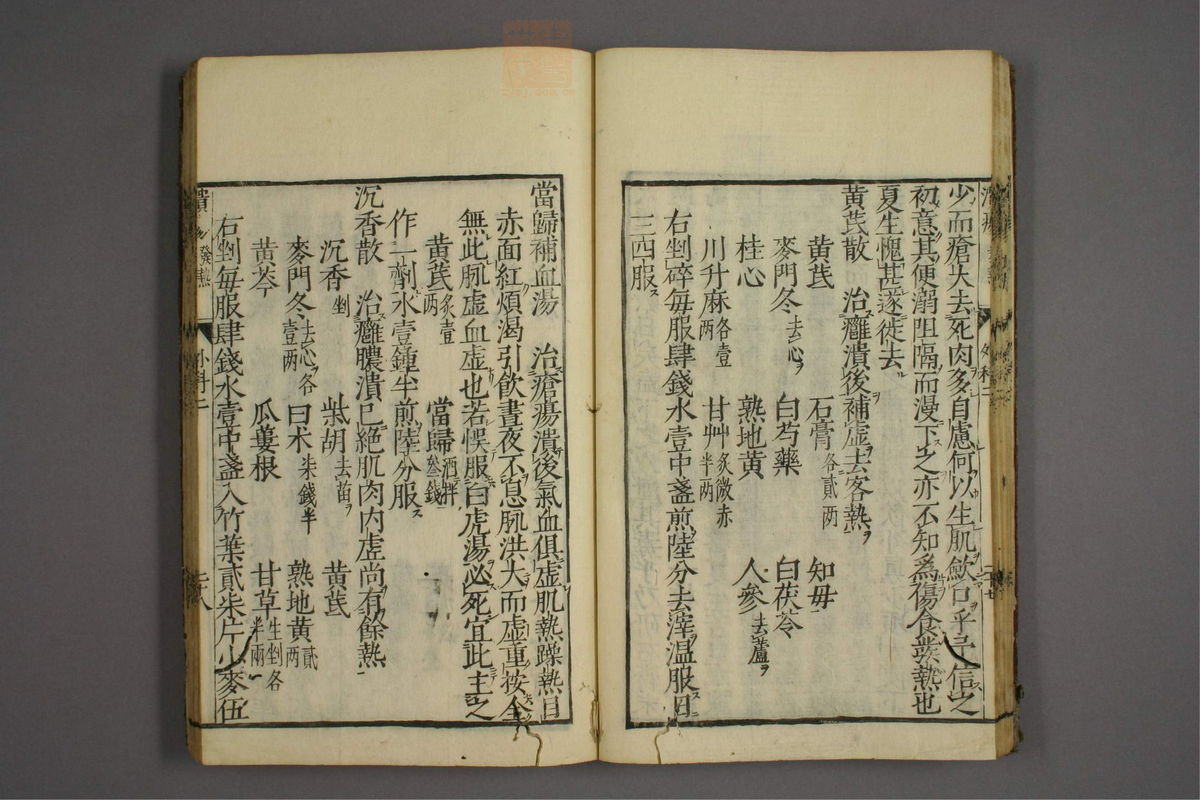 少而瘡大去死肉多自慮何以生肌斂口乎予信之
初意其便溺阻隔而漫下之亦不知為傷食發熱也
夏生愧甚遂徙去
黃茋散　治癰潰後補虛去客熱
黃茋　石膏各貳兩　知母
麥門冬去心　白芍藥　白茯苓
桂心　熟地黃　人參去蘆
川升麻各壹兩　甘艸炙微赤半兩
右剉碎每服肆錢水壹中盞煎陸分去滓温服日
三四服
當歸補血湯　治瘡瘍潰後氣血俱虛肌熱躁熱目
赤面紅煩渴引飲晝夜不息脉洪大而虛重按全
無此脉虛血虛也若悞服白虎湯必死宜此主之
黃茋炙壹兩　當歸酒拌叄錢
作一劑水壹鍾半煎陸分服
沉香散　治癰膿潰已絕肌肉内虛尚有餘熱
沉香剉　柴胡去苗　黃茋
麥門冬去心各壹兩　白术柒錢半　熟地黃貳兩
黃芩　瓜蔞根　甘草生剉各半兩
右剉每服肆錢水壹中盞入竹葉貳柒片小麥伍
潰瘍發熱　外科二　二十八